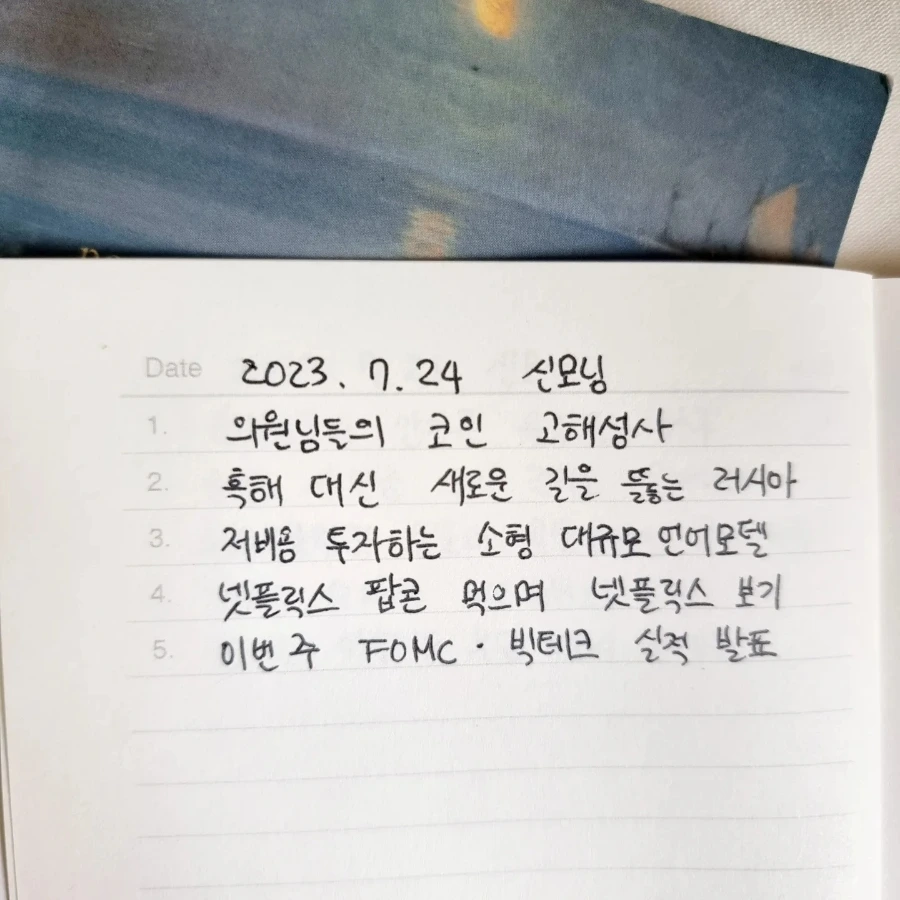 Date 2023. 7. 24 신모닝
1. 의원님들의 코인 고해성사
2. 흑해 대신 새로운 길을 뚫는 러시아
3. 저비용 투자하는 소형 대규모 언어모델
4. 넷플릭스 팝콘 먹으며 넷플릭스 보기
5. 이번 주 FOMC · 빅테크 실적 발표